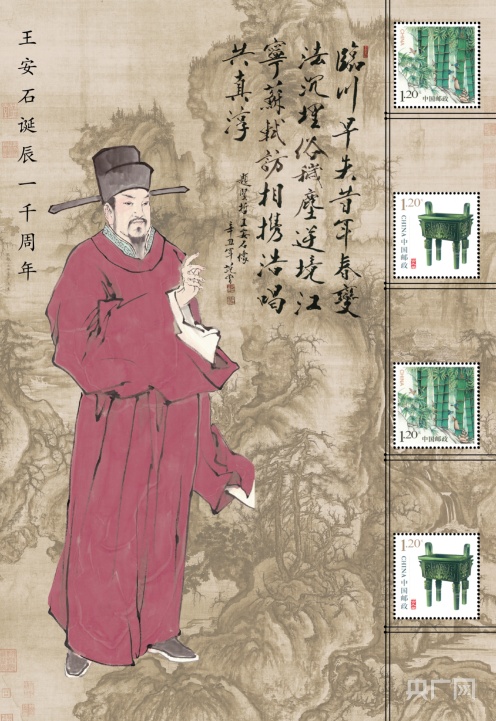 王安石诞辰一千周年
臨川早失昔年春變
法沉埋俗穢塵逆境江
寧蘇軾訪相携浩唱
共真淳
王安石像
辛丑年
CHINA
1.20元
中国邮政
1.20元
CHINA 中国邮政
CHINA
1.20元
中国邮政
1.20元
CHINA 中国邮政
央广网